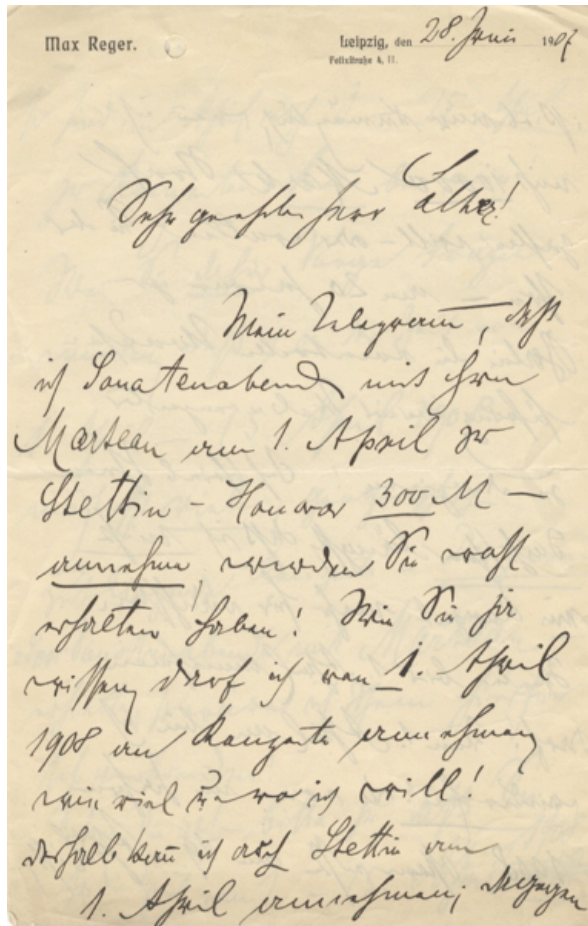 Max Reger.
Leipzig, den 28. Juni 1907
Felixstraße 4, II.
Sehr geehrter Herr
Mein Telegramm, daß
ich Sonatenabend mit Hrn
Marteau am 1. April zu
Stettin – Honorar 300 M –
annehme, werden Sie wohl
erhalten haben! Wie Sie ja
wissen, darf ich von 1. April
1908 an Konzerte annehmen
wie viel u. wo ich will!
deshalb kann ich auch Stettin am
1. April annehmen; dagegen